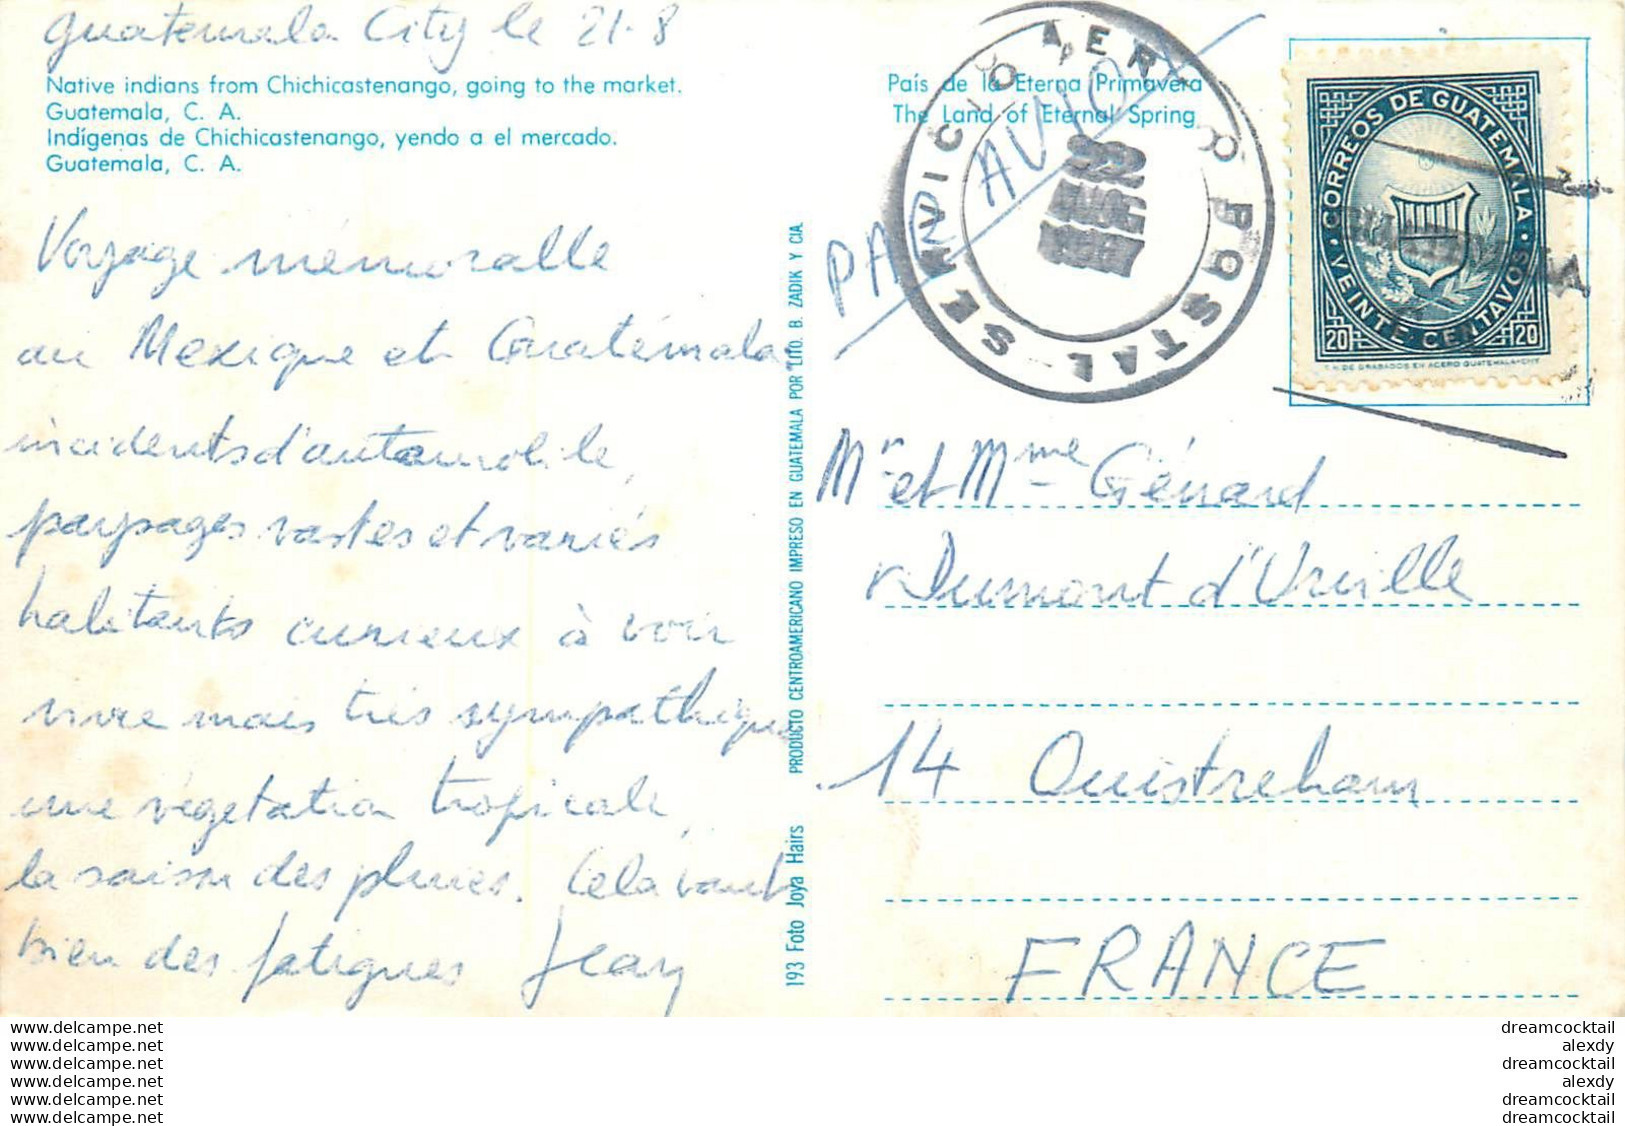 Guatemala City le 21-8
Native indians from Chichicastenango, going to the market.
Guatemala, C. A.
Indígenas de Chichicastenango, yendo a el mercado.
Guatemala, C. A.
Voyage mémorable
au Mexique et Guatémala
incidents d'automobile,
paysages vastes et variés
habitants curieux à voir
vivre mais très sympathiques
une végétation tropicale,
la saison des pluies. Cela vaut
bien des fatigues Jean
193 Foto Joya Hairs PRODUCTO CENTROAMERICANO IMPRESO EN GUATEMALA POR LITO. B. ZADIK Y CIA.
País de la Eterna Primavera
The Land of Eternal Spring
PAR AVION
SERVICIO AEREO POSTAL
22 AUG 1967
CORREOS DE GUATEMALA
VEINTE CENTAVOS
20 20
T. N. DE GRABADOS EN ACERO GUATEMALA
Mr et Mme Génard
r Dumont d'Urville
14 Ouistreham
FRANCE
www.delcampe.net
www.delcampe.net
www.delcampe.net
www.delcampe.net
www.delcampe.net
www.delcampe.net
dreamcocktail
alexdy
dreamcocktail
alexdy
dreamcocktail
dreamcocktail